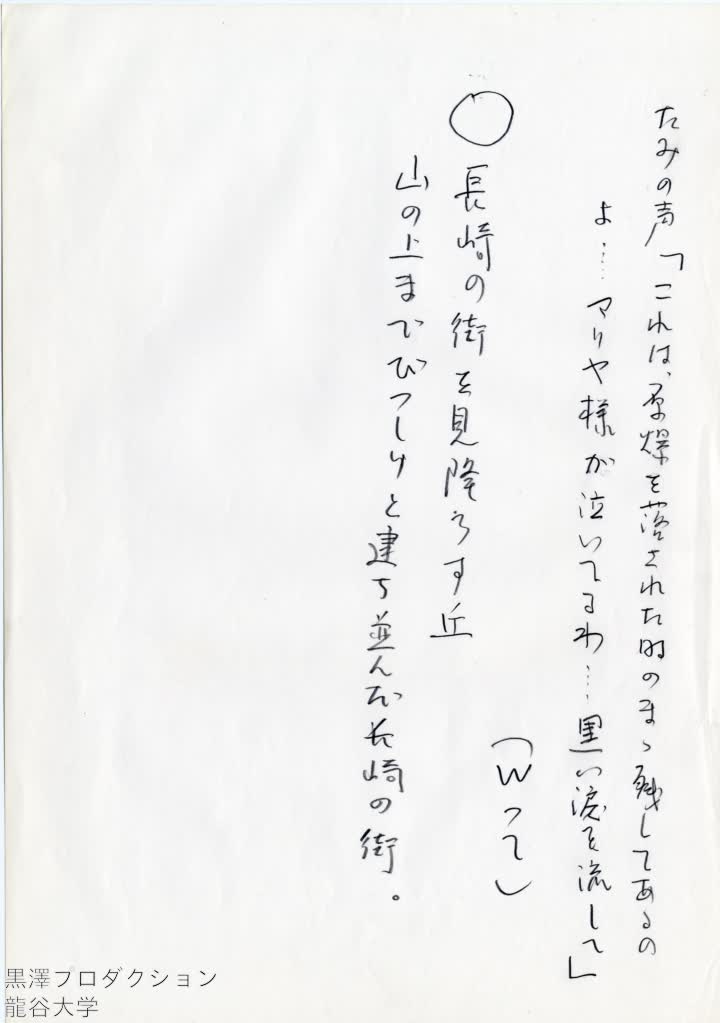 たみの声「これは、原爆を落された時のまゝ残してあるの
よ……マリヤ様が泣いてるわ……黒い涙を流して」
(Wって)
◯ 長崎の街を見降らす丘
山の上までびっしりと建ち並んだ長崎の街。
黒澤プロダクション
龍谷大学